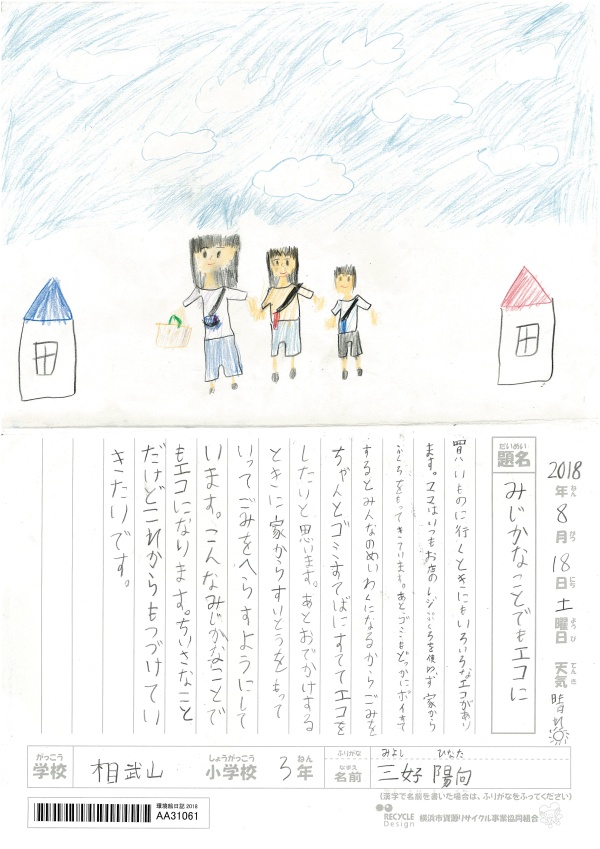 2018年8月18日土曜日 天気 晴れ
ねん
がつ
にち
よう び
てんき
だいめい
題名
みじかなことでもエコに
買いものに行くときにもいろいろなエコがあり
ます。ママはいつもお店のレジぶくろを使わず家から
ふくろをもってきています。あとゴミもどっかにポイすて
するとみんなのめいわくになるからごみを
ちゃんとゴミすてばにすててエコを
したいと思います。あとおでかけする
ときに家からすいとうをもって
いってごみをへらすようにして
います。こんなみじかなことで
もエコになります。ちいさなこと
だけどこれからもつづけてい
きたいです。
がっこう
学校
相武山
しょうがっこう
小学校
3年
ねん
ふりがな
みよし ひなた
なまえ
名前
三好 陽向
(漢字で名前を書いた場合は、ふりがなをふってください)
環境絵日記2018
AA31061
RECYCLE Design
横浜市資源リサイクル事業協同組合